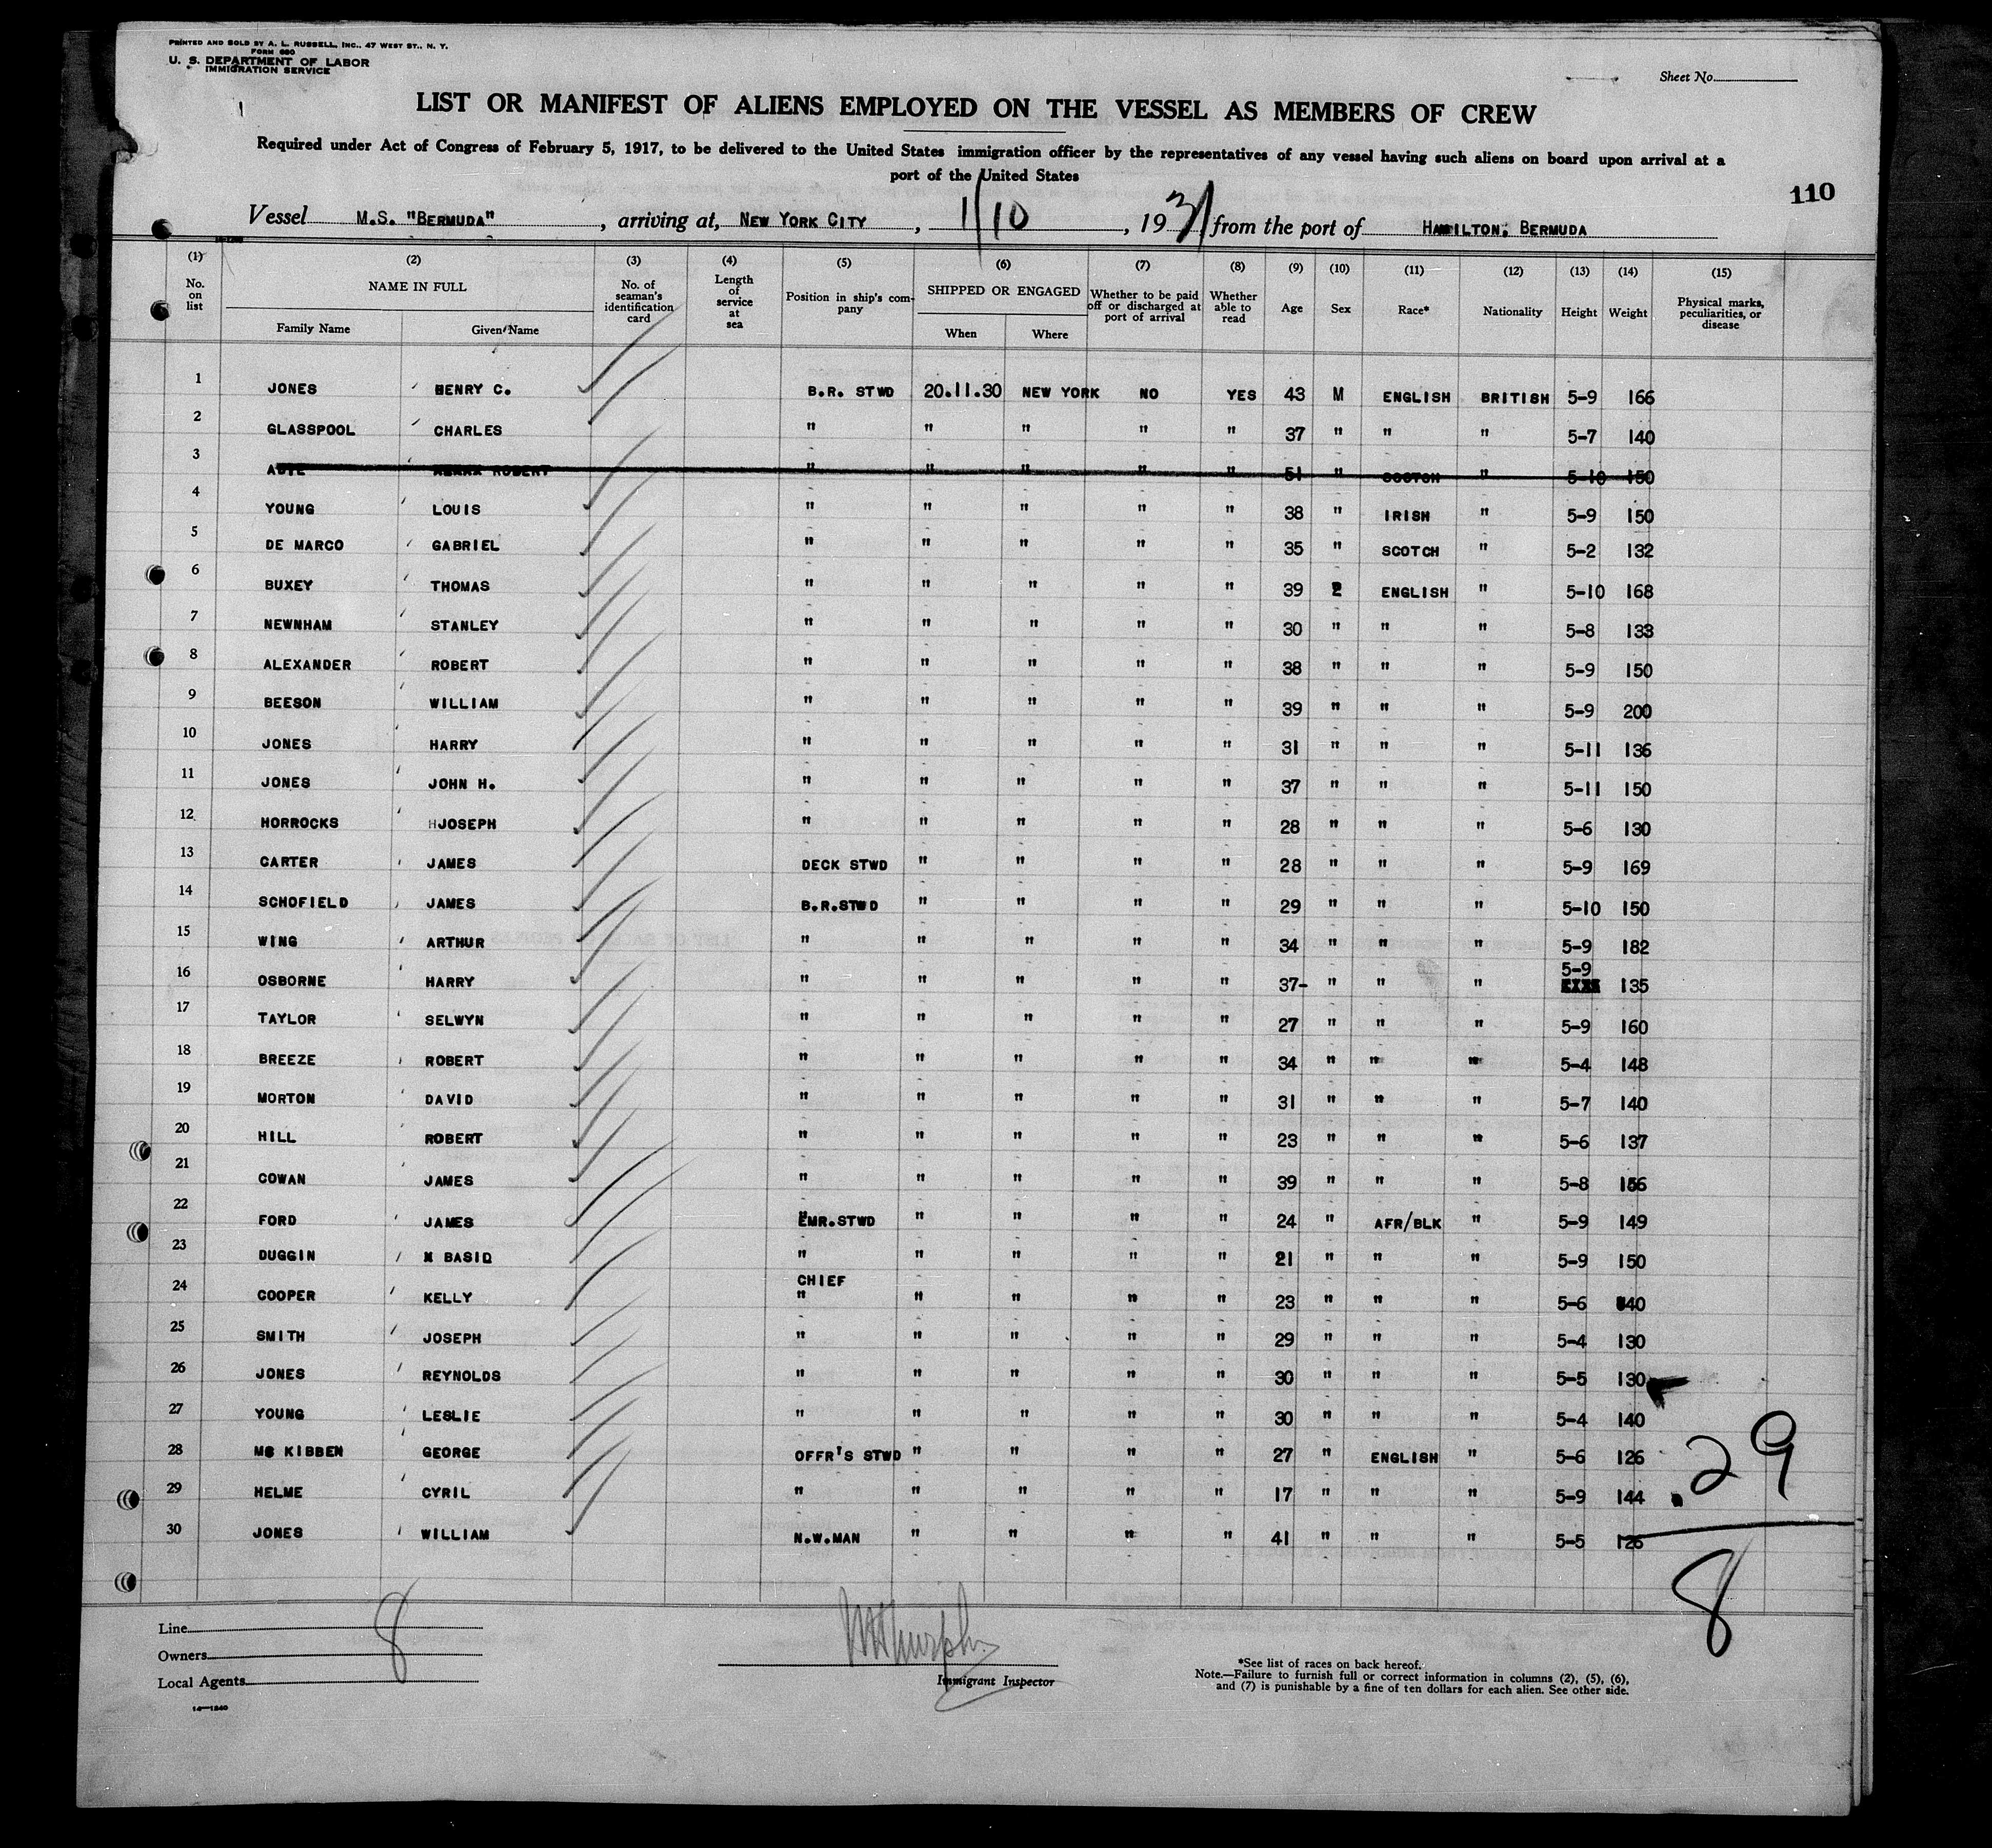 PRINTED AND SOLD BY A. L. RUSSELL, INC., 47 WEST ST., N. Y.
FORM 680
U. S. DEPARTMENT OF LABOR
IMMIGRATION SERVICE
Sheet No.
LIST OR MANIFEST OF ALIENS EMPLOYED ON THE VESSEL AS MEMBERS OF CREW
Required under Act of Congress of February 5, 1917, to be delivered to the United States immigration officer by the representatives of any vessel having such aliens on board upon arrival at a
port of the United States
110
Vessel M.S. "BERMUDA", arriving at, NEW YORK CITY, 1/10, 1931 from the port of HAMILTON, BERMUDA
(1) (2) (3) (4) (5) (6) (7) (8) (9) (10) (11) (12) (13) (14) (15)
No. on list NAME IN FULL Family Name Given Name No. of seaman's identification card Length of service at sea Position in ship's company SHIPPED OR ENGAGED When Where Whether to be paid off or discharged at port of arrival Whether able to read Age Sex Race* Nationality Height Weight Physical marks, peculiarities, or disease
1 JONES HENRY C. B.R. STWD 20.11.30 NEW YORK NO YES 43 M ENGLISH BRITISH 5-9 166
2 GLASSPOOL CHARLES " " " " " 37 " " " 5-7 140
3 ROBERT " " " " " 51 " SCOTCH " 5-10 150
4 YOUNG LOUIS " " " " " 38 " IRISH " 5-9 150
5 DE MARCO GABRIEL " " " " " 35 " SCOTCH " 5-2 132
6 BUXEY THOMAS " " " " " 39 ENGLISH " 5-10 168
7 NEWNHAM STANLEY " " " " " 30 " " " 5-8 133
8 ALEXANDER ROBERT " " " " " 38 " " " 5-9 150
9 BEESON WILLIAM " " " " " 39 " " " 5-9 200
10 JONES HARRY " " " " " 31 " " " 5-11 136
11 JONES JOHN H. " " " " " 37 " " " 5-11 150
12 HORROCKS HJOSEPH " " " " " 28 " " " 5-6 130
13 CARTER JAMES DECK STWD " " " " 28 " " " 5-9 169
14 SCHOFIELD JAMES B.R.STWD " " " " 29 " " " 5-10 150
15 WING ARTHUR " " " " " 34 " " " 5-9 182
16 OSBORNE HARRY " " " " " 37- " " " 5-9 135
17 TAYLOR SELWYN " " " " " 27 " " " 5-9 160
18 BREEZE ROBERT " " " " " 34 " " " 5-4 148
19 MORTON DAVID " " " " " 31 " " " 5-7 140
20 HILL ROBERT " " " " " 23 " " " 5-6 137
21 COWAN JAMES " " " " " 39 " " " 5-8 156
22 FORD JAMES EMR.STWD " " " " 24 " AFR/BLK " 5-9 149
23 DUGGIN BASIL " " " " " 21 " " " 5-9 150
24 COOPER KELLY CHIEF " " " " " 23 " " " 5-6 140
25 SMITH JOSEPH " " " " " 29 " " " 5-4 130
26 JONES REYNOLDS " " " " " 30 " " " 5-5 130
27 YOUNG LESLIE " " " " " 30 " " " 5-4 140
28 MC KIBBEN GEORGE OFFR'S STWD " " " " 27 " ENGLISH " 5-6 126
29 HELME CYRIL " " " " " 17 " " " 5-9 144
30 JONES WILLIAM N.W.MAN " " " " 41 " " " 5-5 126
29
8
Line
Owners
8
Local Agents
Immigrant Inspector
*See list of races on back hereof.
Note.—Failure to furnish full or correct information in columns (2), (5), (6),
and (7) is punishable by a fine of ten dollars for each alien. See other side.
14—1240